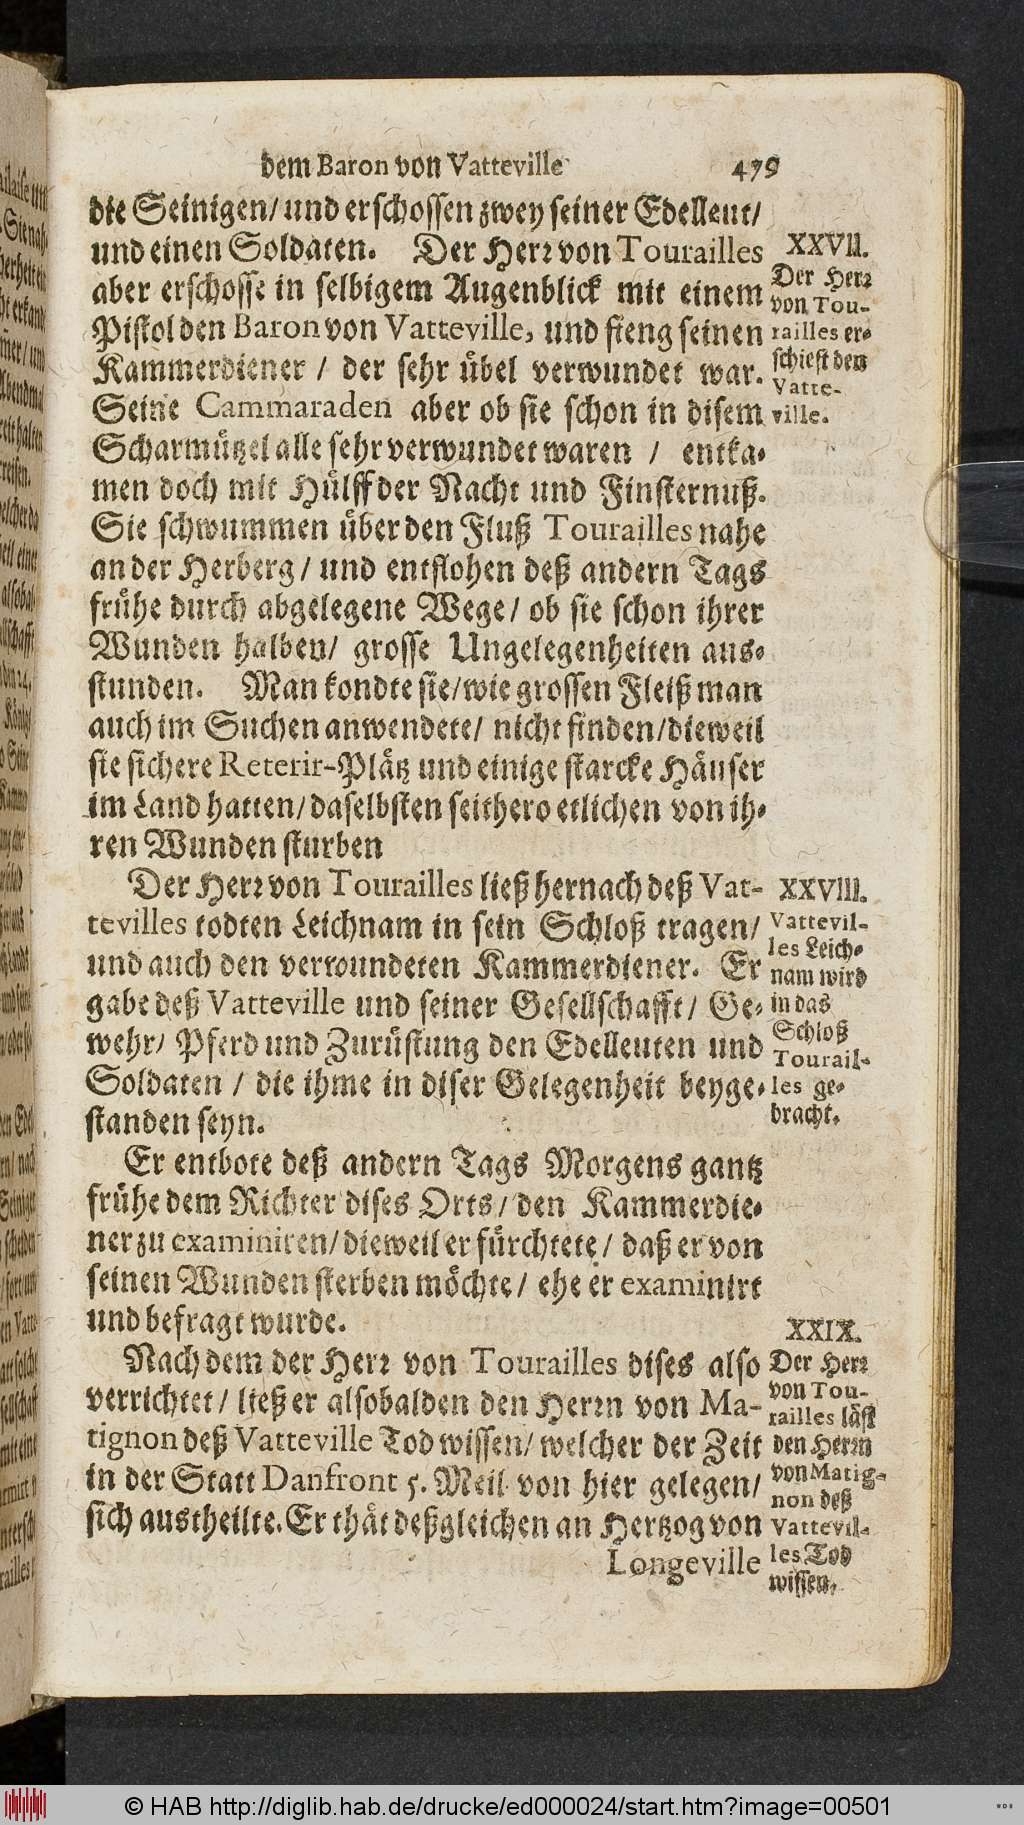 dem Baron von Vatteville 479
die Seinigen/ und erschossen zwey seiner Edelleut/
und einen Soldaten. Der Herr von Tourailles
aber erschosse in selbigem Augenblick mit einem
Pistol den Baron von Vatteville, und fieng seinen
Kammerdiener / der sehr übel verwundet war.
Seine Cammaraden aber ob sie schon in disem
Scharmützel alle sehr verwundet waren / entka-
men doch mit Hülff der Nacht und Finsternuß.
Sie schwummen über den Fluß Tourailles nahe
an der Herberg / und entflohen deß andern Tags
frühe durch abgelegene Wege / ob sie schon ihrer
Wunden halben/ grosse Ungelegenheiten aus-
stunden. Man kondte sie/wie grossen Fleiß man
auch im Suchen anwendete/ nicht finden/dieweil
sie sichere Reterir-Plätz und einige starcke Häuser
im Land hatten/ daselbsten seithero etlichen von ih-
ren Wunden sturben
XXVII.
Der Herr
von Tou-
railles er-
schiest den
Vatte-
ville.
Der Herr von Tourailles ließ hernach deß Vat-
tevilles todten Leichnam in sein Schloß tragen/
und auch den verwundeten Kammerdiener. Er
gabe deß Vatteville und seiner Gesellschafft/ Ge-
wehr/ Pferd und Zurüstung den Edelleuten und
Soldaten / die ihme in diser Gelegenheit beyge-
standen seyn.
XXVIII.
Vattevil-
les Leich-
nam wird
in das
Schloß
Tourail-
les ge-
bracht.
Er entbote deß andern Tags Morgens gantz
frühe dem Richter dises Orts / den Kammerdie-
ner zu examiniren/ dieweil er fürchtete / daß er von
seinen Wunden sterben möchte/ ehe er examinirt
und befragt wurde.
Nach dem der Herr von Tourailles dises also
verrichtet / ließ er alsobalden den Herrn von Ma-
tignon deß Vatteville Tod wissen/ welcher der Zeit
in der Statt Danfront 5. Meil von hier gelegen/
sich austheilte. Er thät deßgleichen an Hertzog von
Longeville
XXIX.
Der Herr
von Tou-
railles läst
den Herrn
von Matig-
non deß
Vattevil-
les Tod
wissen.
© HAB http://diglib.hab.de/drucke/ed000024/start.htm?image=00501